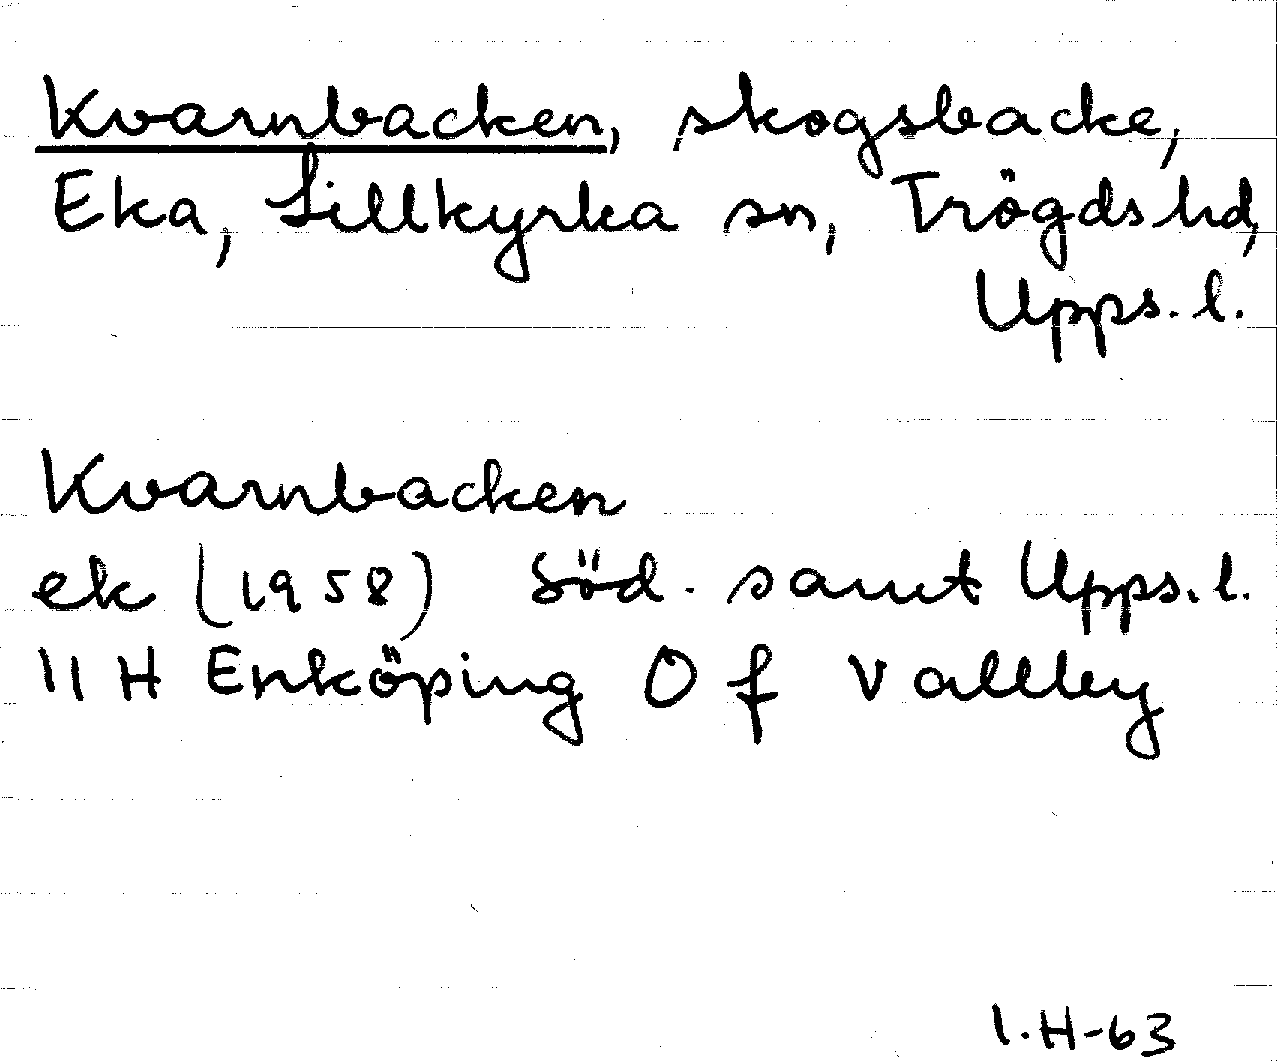 Kvarnbacken, skogsbacke,
Eka, Lillkyrka sn, Trögds hd,
Upps. l.
Kvarnbacken
ek (1958) Söd. samt Upps. l.
11 H Enköping 0 f Vallby
I.H-63